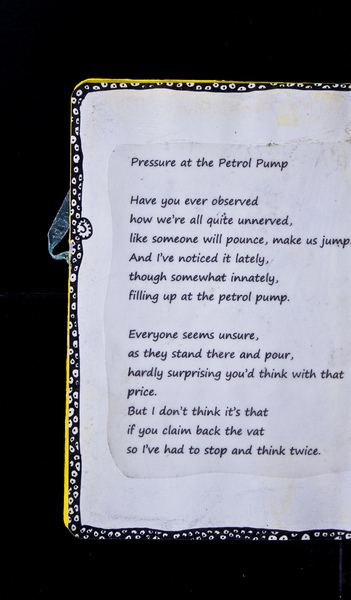 Pressure at the Petrol Pump
Have you ever observed
how we're all quite unnerved,
like someone will pounce, make us jump.
And I've noticed it lately,
though somewhat innately,
filling up at the petrol pump.
Everyone seems unsure,
as they stand there and pour,
hardly surprising you'd think with that
price.
But I don't think it's that
if you claim back the vat
so I've had to stop and think twice.